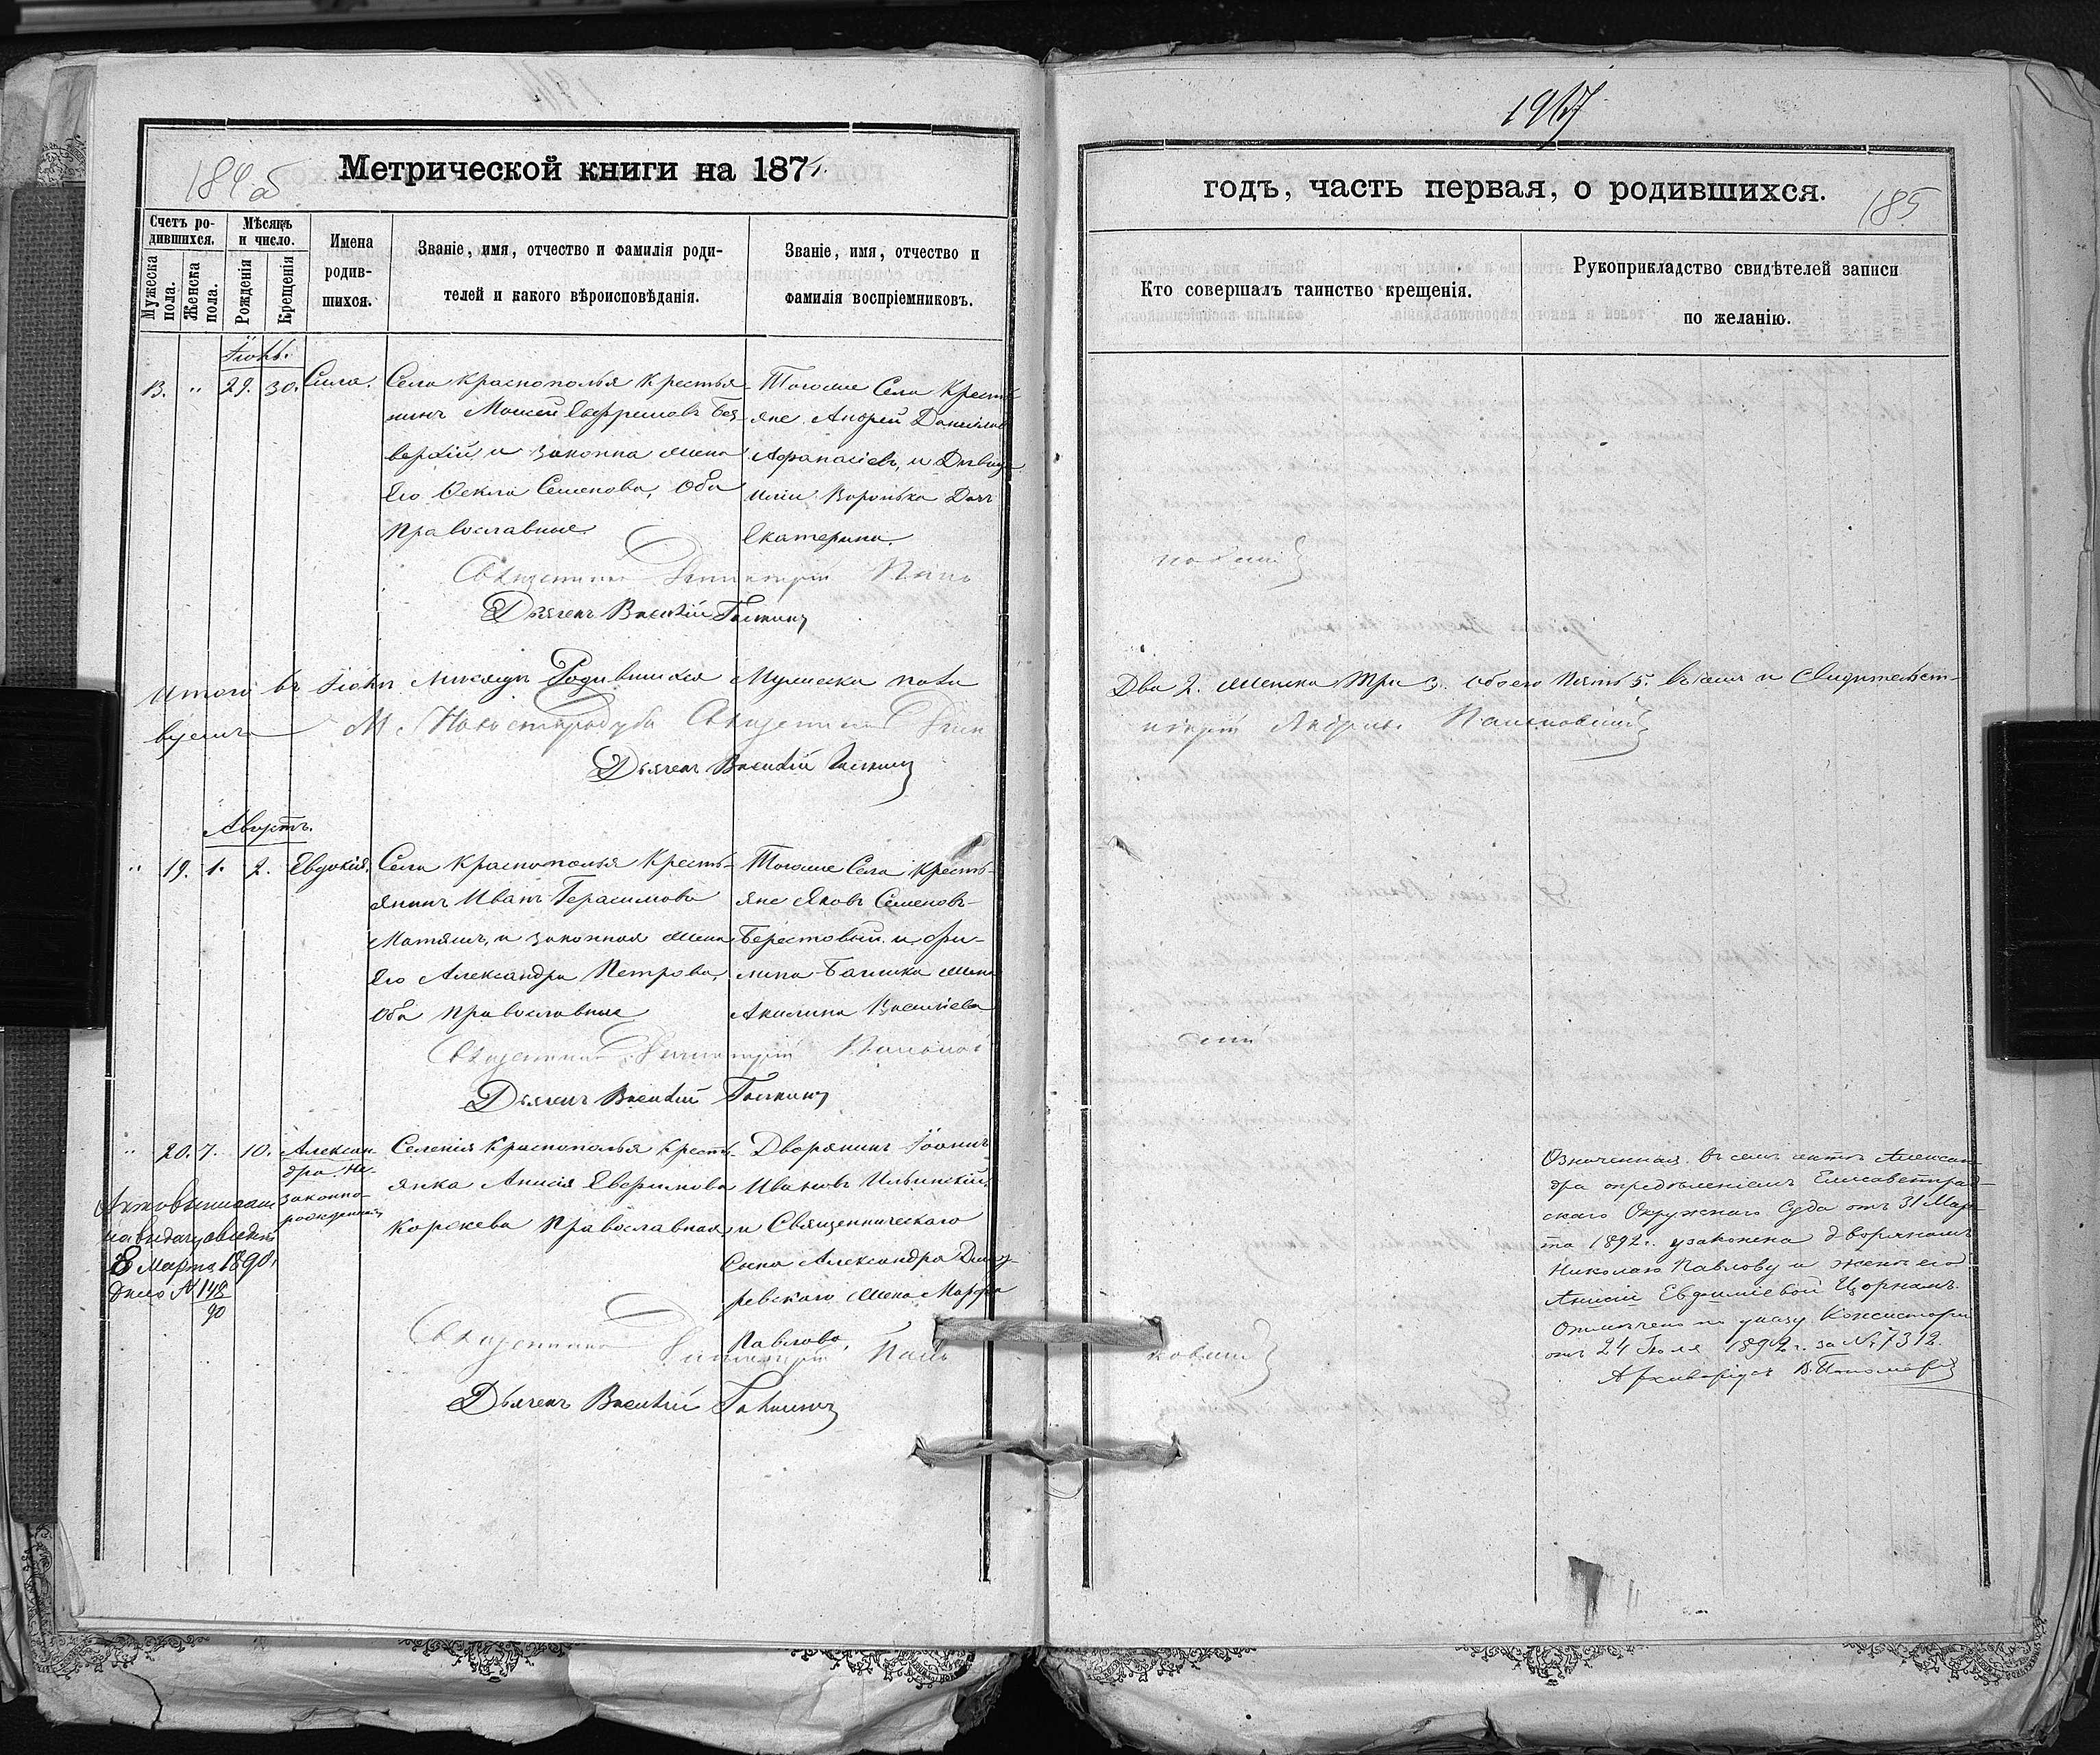 184 об
Метрической книги на 1874
Счетъ ро-
дившихся.
Мѣсяцъ
и число.
Мужеска
пола.
Женска
пола.
Рожденія
Крещенія
Имена
родив-
шихся.
Званіе, имя, отчество и фамилія роди-
телей и какого вѣроисповѣданія.
Званіе, имя, отчество и
фамилія воспріемниковъ.
13. " 29. 30. Сила.
Села Краснополья Крестья-
нинъ Моисей Ефремовъ
и законна жена
Его Ѳекла Семенова, Оба
Православные.
Тогоже Села Кресть
яне Андрей Даниловъ
Афанасіевъ, и Дѣвица
Воронька Дочь
Екатерина.
Священникъ Димитрій Пань
Дьячекъ Василій Галкинъ
Итого въ Мѣсяцѣ Родившихся Мужеска пола
М. Новостародуба Священникъ Дим
Дьячекъ Василій Галкинъ
Августъ.
" 19. 1. 2. Евдокія.
Села Краснополья Кресть-
янинъ Иванъ Герасимовъ
Матяшъ, и законная жена
Его Александра Петрова,
Оба православные
Тогоже Села Кресть-
яне Яковъ Семеновъ
Берестовый и Фи-
липа жена
Акилина Василіева
Священникъ Димитрій Паньков
Дьячекъ Василій Галкинъ
" 20. 7. 10. Алексан-
дра Не-
законно-
рожденная
Селенія Краснополья Кресть-
янка Анисія Евфимова
Коркева Православная
Дворянинъ Іоаннъ
Ивановъ Ильинскій
и Священническаго
Сына Александра
жена Марфа
Павлова,
Актовъ выписанъ
на выдачу
8 Марта 1890 г.
дѣло № 148
90
Священникъ Димитрій Пань
Дьячекъ Василій Галкинъ
1917
годъ, часть первая, о родившихся.
185
Кто совершалъ таинство крещенія.
Рукоприкладство свидѣтелей записи
по желанію.
ковскій
Два 2. женска Три 3. обоего Пять 5. въ чемъ и Свидѣтельст-
итрій Паньковскій
скій
ковскій
Означенная въ семъ актѣ Алексан-
дра опредѣленіемъ Елисаветград-
скаго Окружнаго Суда отъ 31 Мар-
та 1892 г. узаконена дворянамъ
Николаю Павлову и женѣ его
Анисіи Евфиміевой Цорнамъ.
Отмѣчено по указу Консисторіи
отъ 24 Іюля 1892 г. за № 7312.
Архиваріусъ В. Пономарев